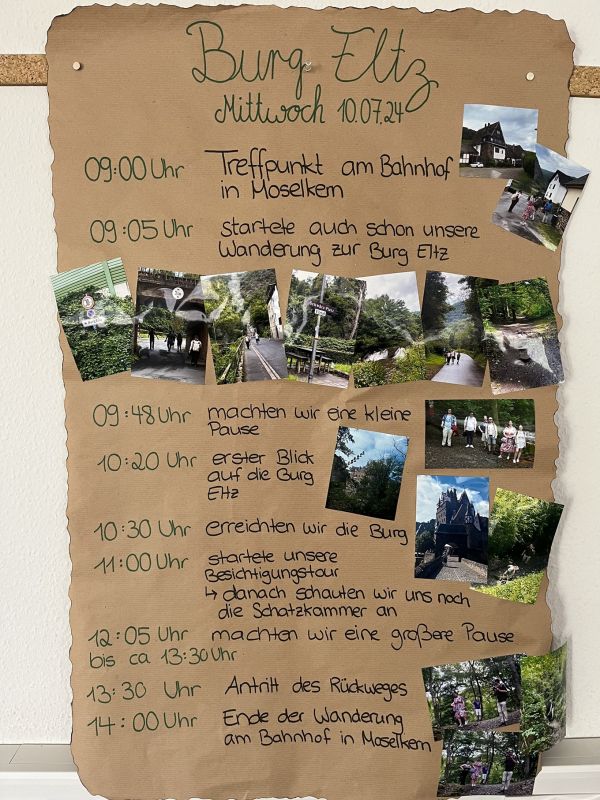 Burg Eltz
Mittwoch 10.07.24
09:00 Uhr Treffpunkt am Bahnhof
in Moselkern
09:05 Uhr startete auch schon unsere
Wanderung zur Burg Eltz
09:48 Uhr machten wir eine kleine
Pause
10:20 Uhr erster Blick
auf die Burg
Eltz
10:30 Uhr erreichten wir die Burg
11:00 Uhr startete unsere
Besichtigungstour
↳ danach schauten wir uns noch
die Schatzkammer an
12:05 Uhr machten wir eine größere Pause
bis ca 13:30 Uhr
13:30 Uhr Antritt des Rückweges
14:00 Uhr Ende der Wanderung
am Bahnhof in Moselkern